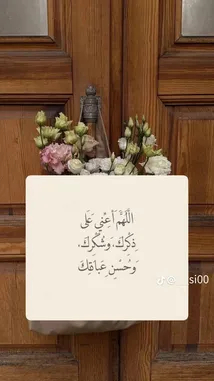 اللَّهُمَّ أَعِنِّي عَلَى
ذِكْرِكَ، وَشُكْرِكَ،
وَحُسْنِ عِبَادَتِكَ